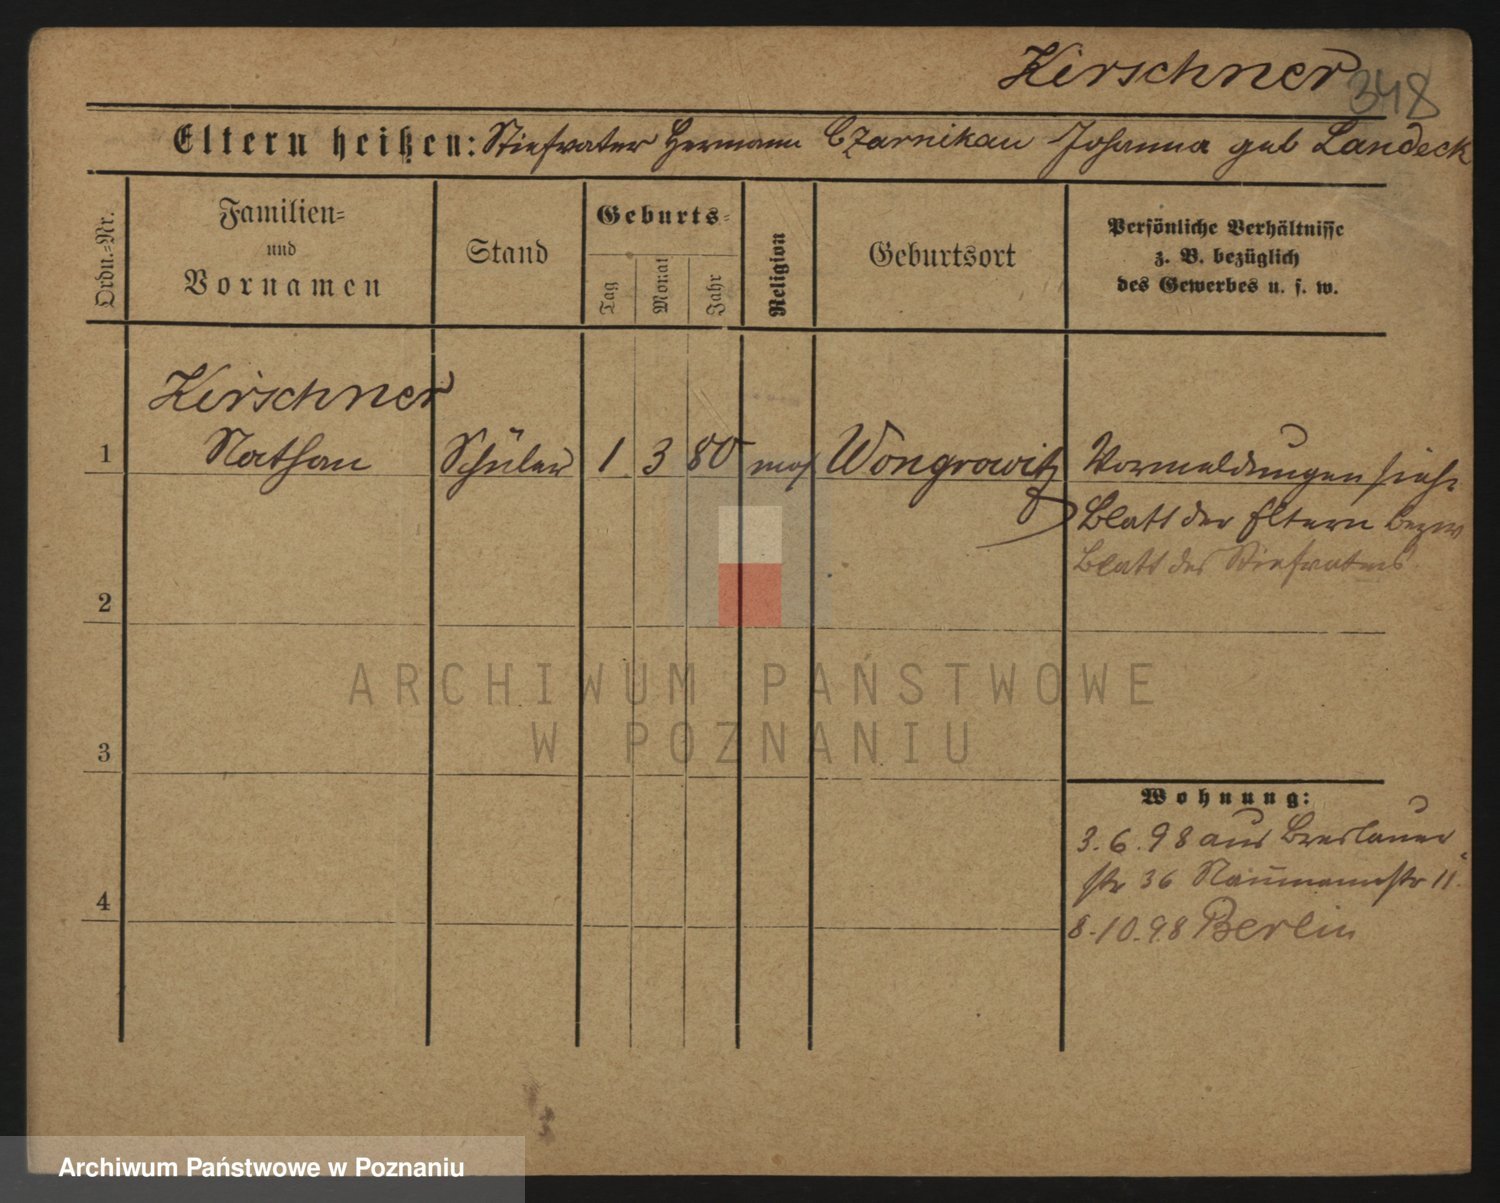 Kirschner 348
Eltern heißen: Stiefvater Hermann Czarnikau Johanna geb Landeck
Ordn.-Nr.
Familien-
und
Vornamen
Stand
Geburts-
Tag
Monat
Jahr
Religion
Geburtsort
Persönliche Verhältnisse
z. B. bezüglich
des Gewerbes u. s. w.
Kirschner
1 Nathan Schüler 1 3 80 mos Wongrowitz Vormeldungen siehe
Blatt der Eltern bezw
Blatt des Stiefvaters
2
ARCHIWUM PAŃSTWOWE
W POZNANIU
3
Wohnung:
3.6.98 aus Breslauer
str 36 Naumannstr 11
4
8.10.98 Berlin
Archiwum Państwowe w Poznaniu